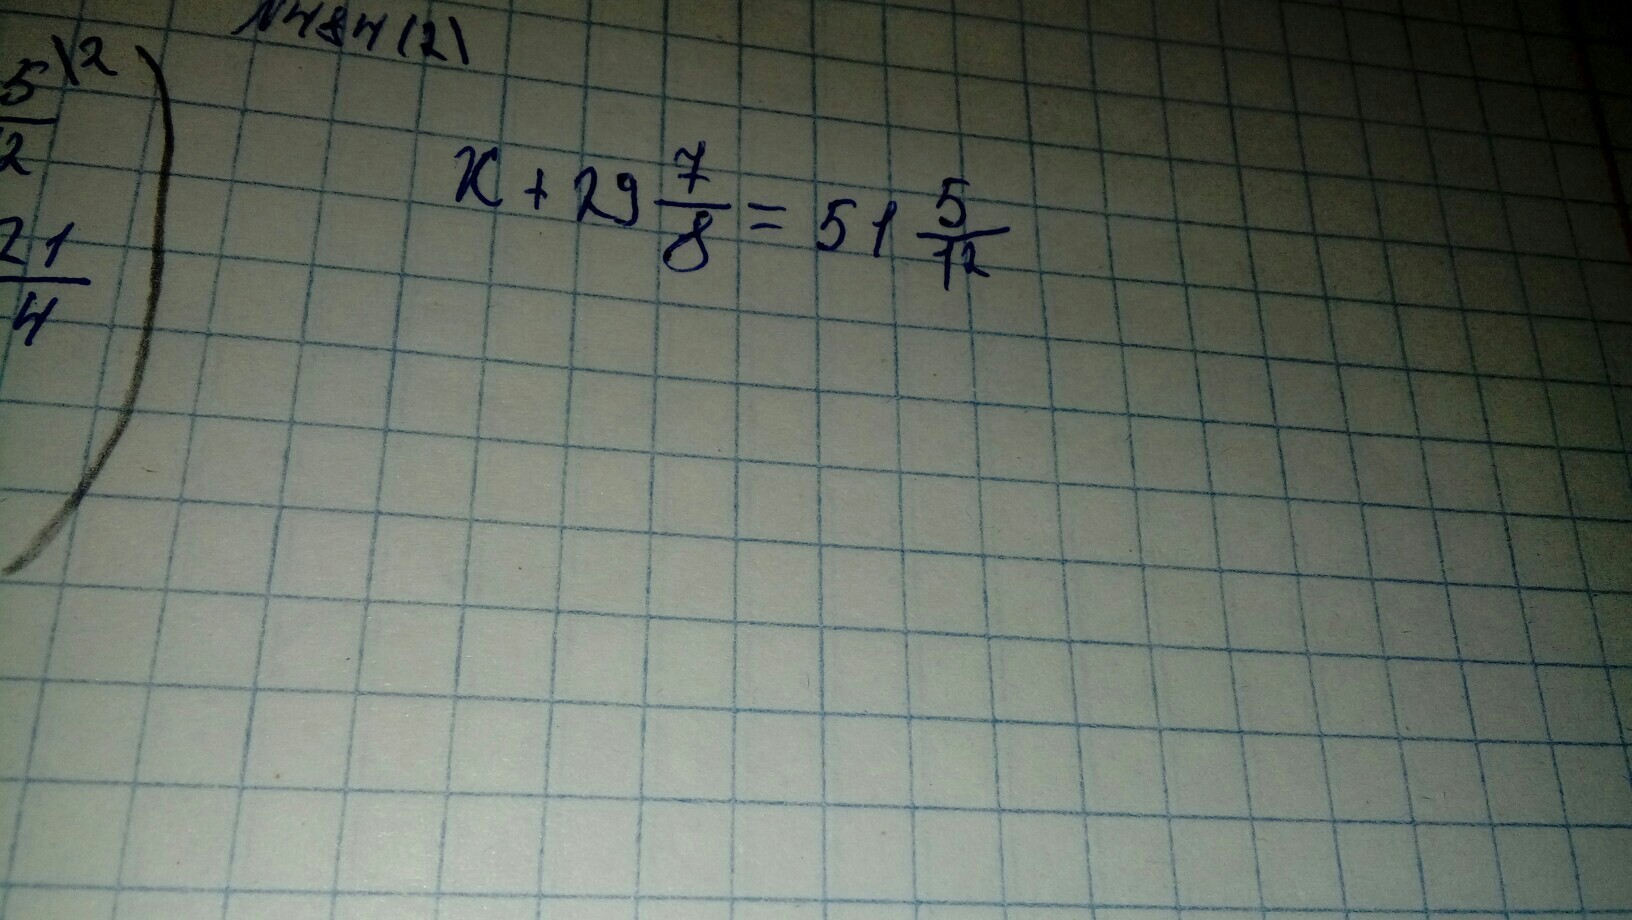 N484(2)
5\2
2
21
4
x + 29 7/8 = 51 5/12